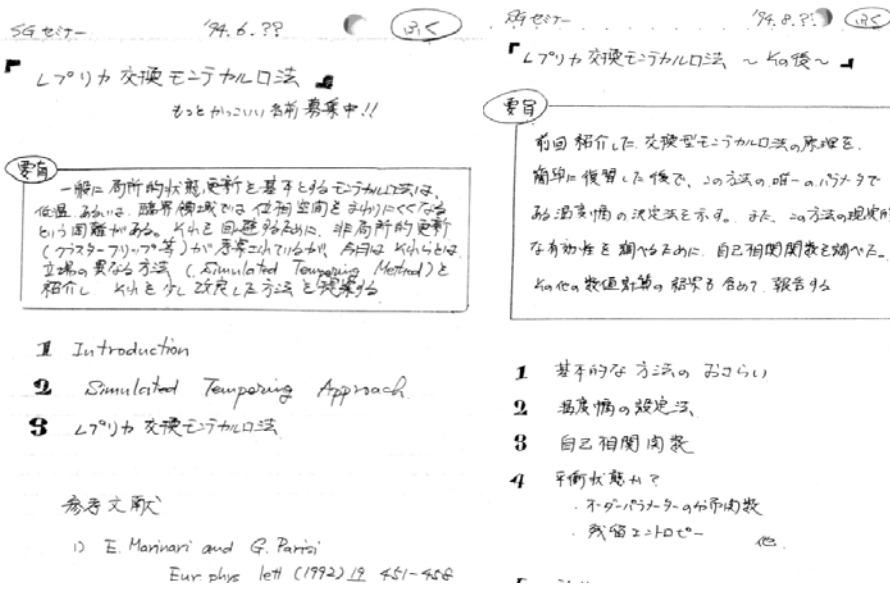 SGセミナー '94.6.?? ふく
『レプリカ交換モンテカルロ法』
もっとかっこいい名前募集中!!
要旨
一般に局所的状態更新を基本とするモンテカルロ法は、
低温あるいは、臨界領域では位相空間をまわりにくくなる
という困難がある。それを回避するために、非局所的更新
(クラスターフリップ等)が考案されているが、今回はそれらとは
立場の異なる方法 (Simulated Tempering Method)を
紹介し それを少し改良した方法を提案する
1 Introduction
2 Simulated Tempering Approach
3 レプリカ交換モンテカルロ法
参考文献
1) E. Marinari and G. Parisi
Eur. phys lett (1992) 19 451-458
SGセミナー '94.8.?? ふく
『レプリカ交換モンテカルロ法 ~その後~』
要旨
前回紹介した、交換型モンテカルロ法の原理を、
簡単に復習した後で、この方法の唯一のパラメタで
ある温度幅の決定法を示す。また、この方法の現実的
な有効性を調べるために、自己相関関数を調べた。
その他の数値計算の結果も含めて、報告する
1 基本的な方法のおさらい
2 温度幅の設定法
3 自己相関関数
4 平衡状態か?
・オーダーパラメーターの分布関数
・残留エントロピー 他